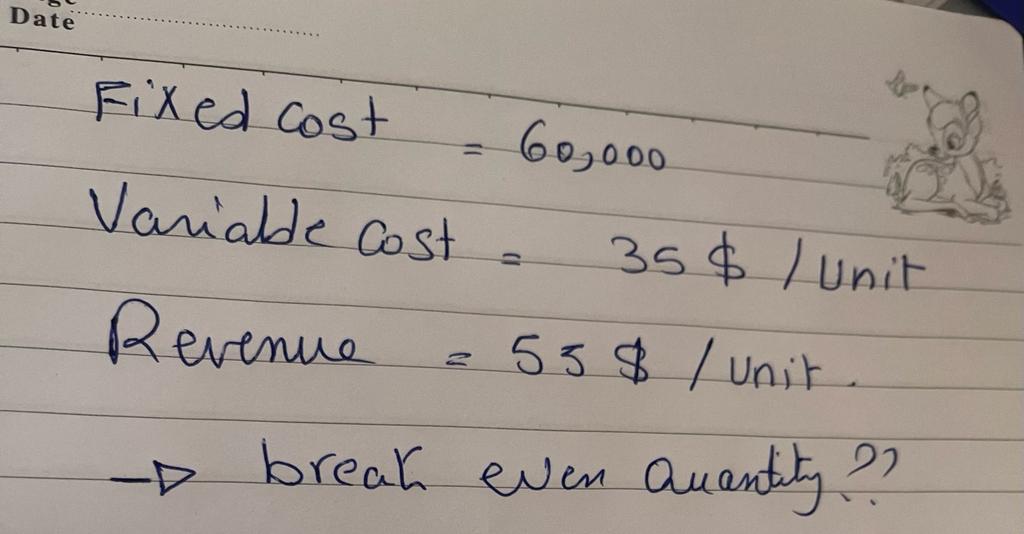 Date
Fixed cost = 60,000
Variable cost = 35 $ / unit
Revenue = 55 $ / unit.
→ break even Quantity ??